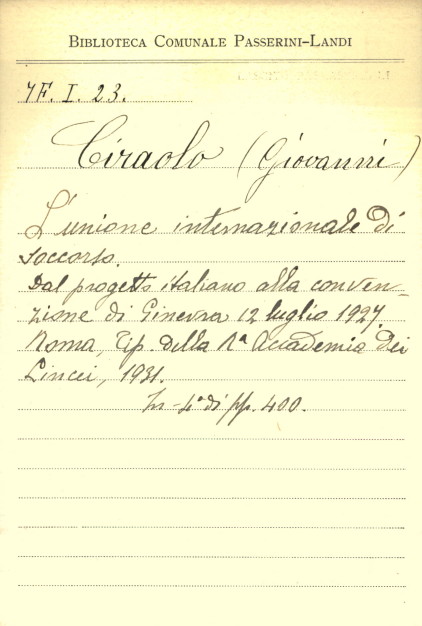 BIBLIOTECA COMUNALE PASSERINI-LANDI
7F. I. 23.
Ciraolo (Giovanni)
L'unione internazionale di
soccorso.
Dal progetto italiano alla conven-
zione di Ginevra 12 luglio 1927
Roma, Tip. della Rª Accademia dei
Lincei, 1931.
In-4º di pp. 400.